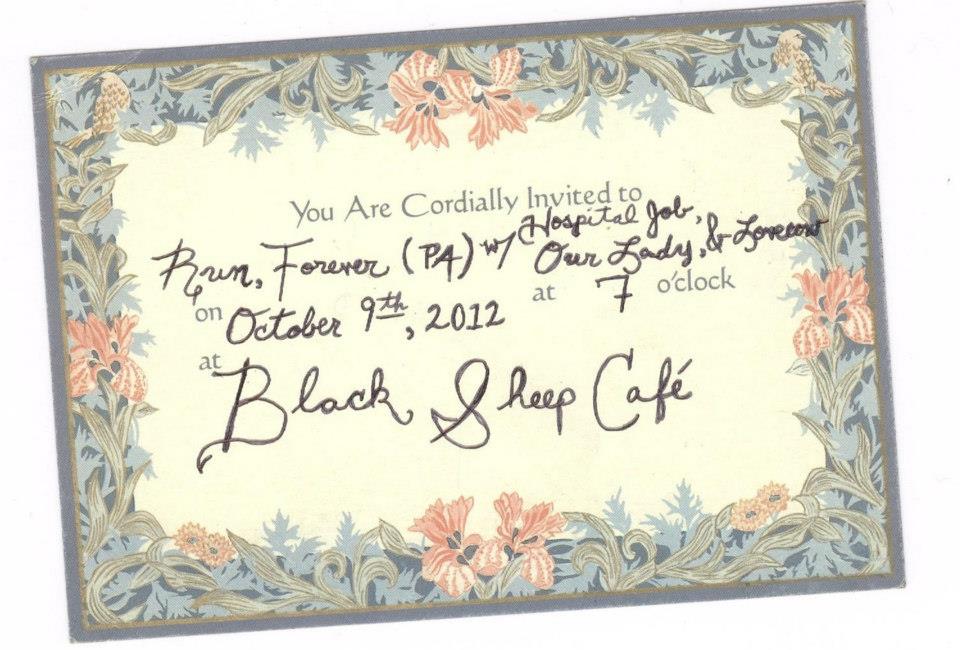 You Are Cordially Invited to
Run, Forever (PA) w/ Hospital Job,
Our Lady, & Lovecow
on October 9th, 2012 at 7 o'clock
at Black Sheep Café